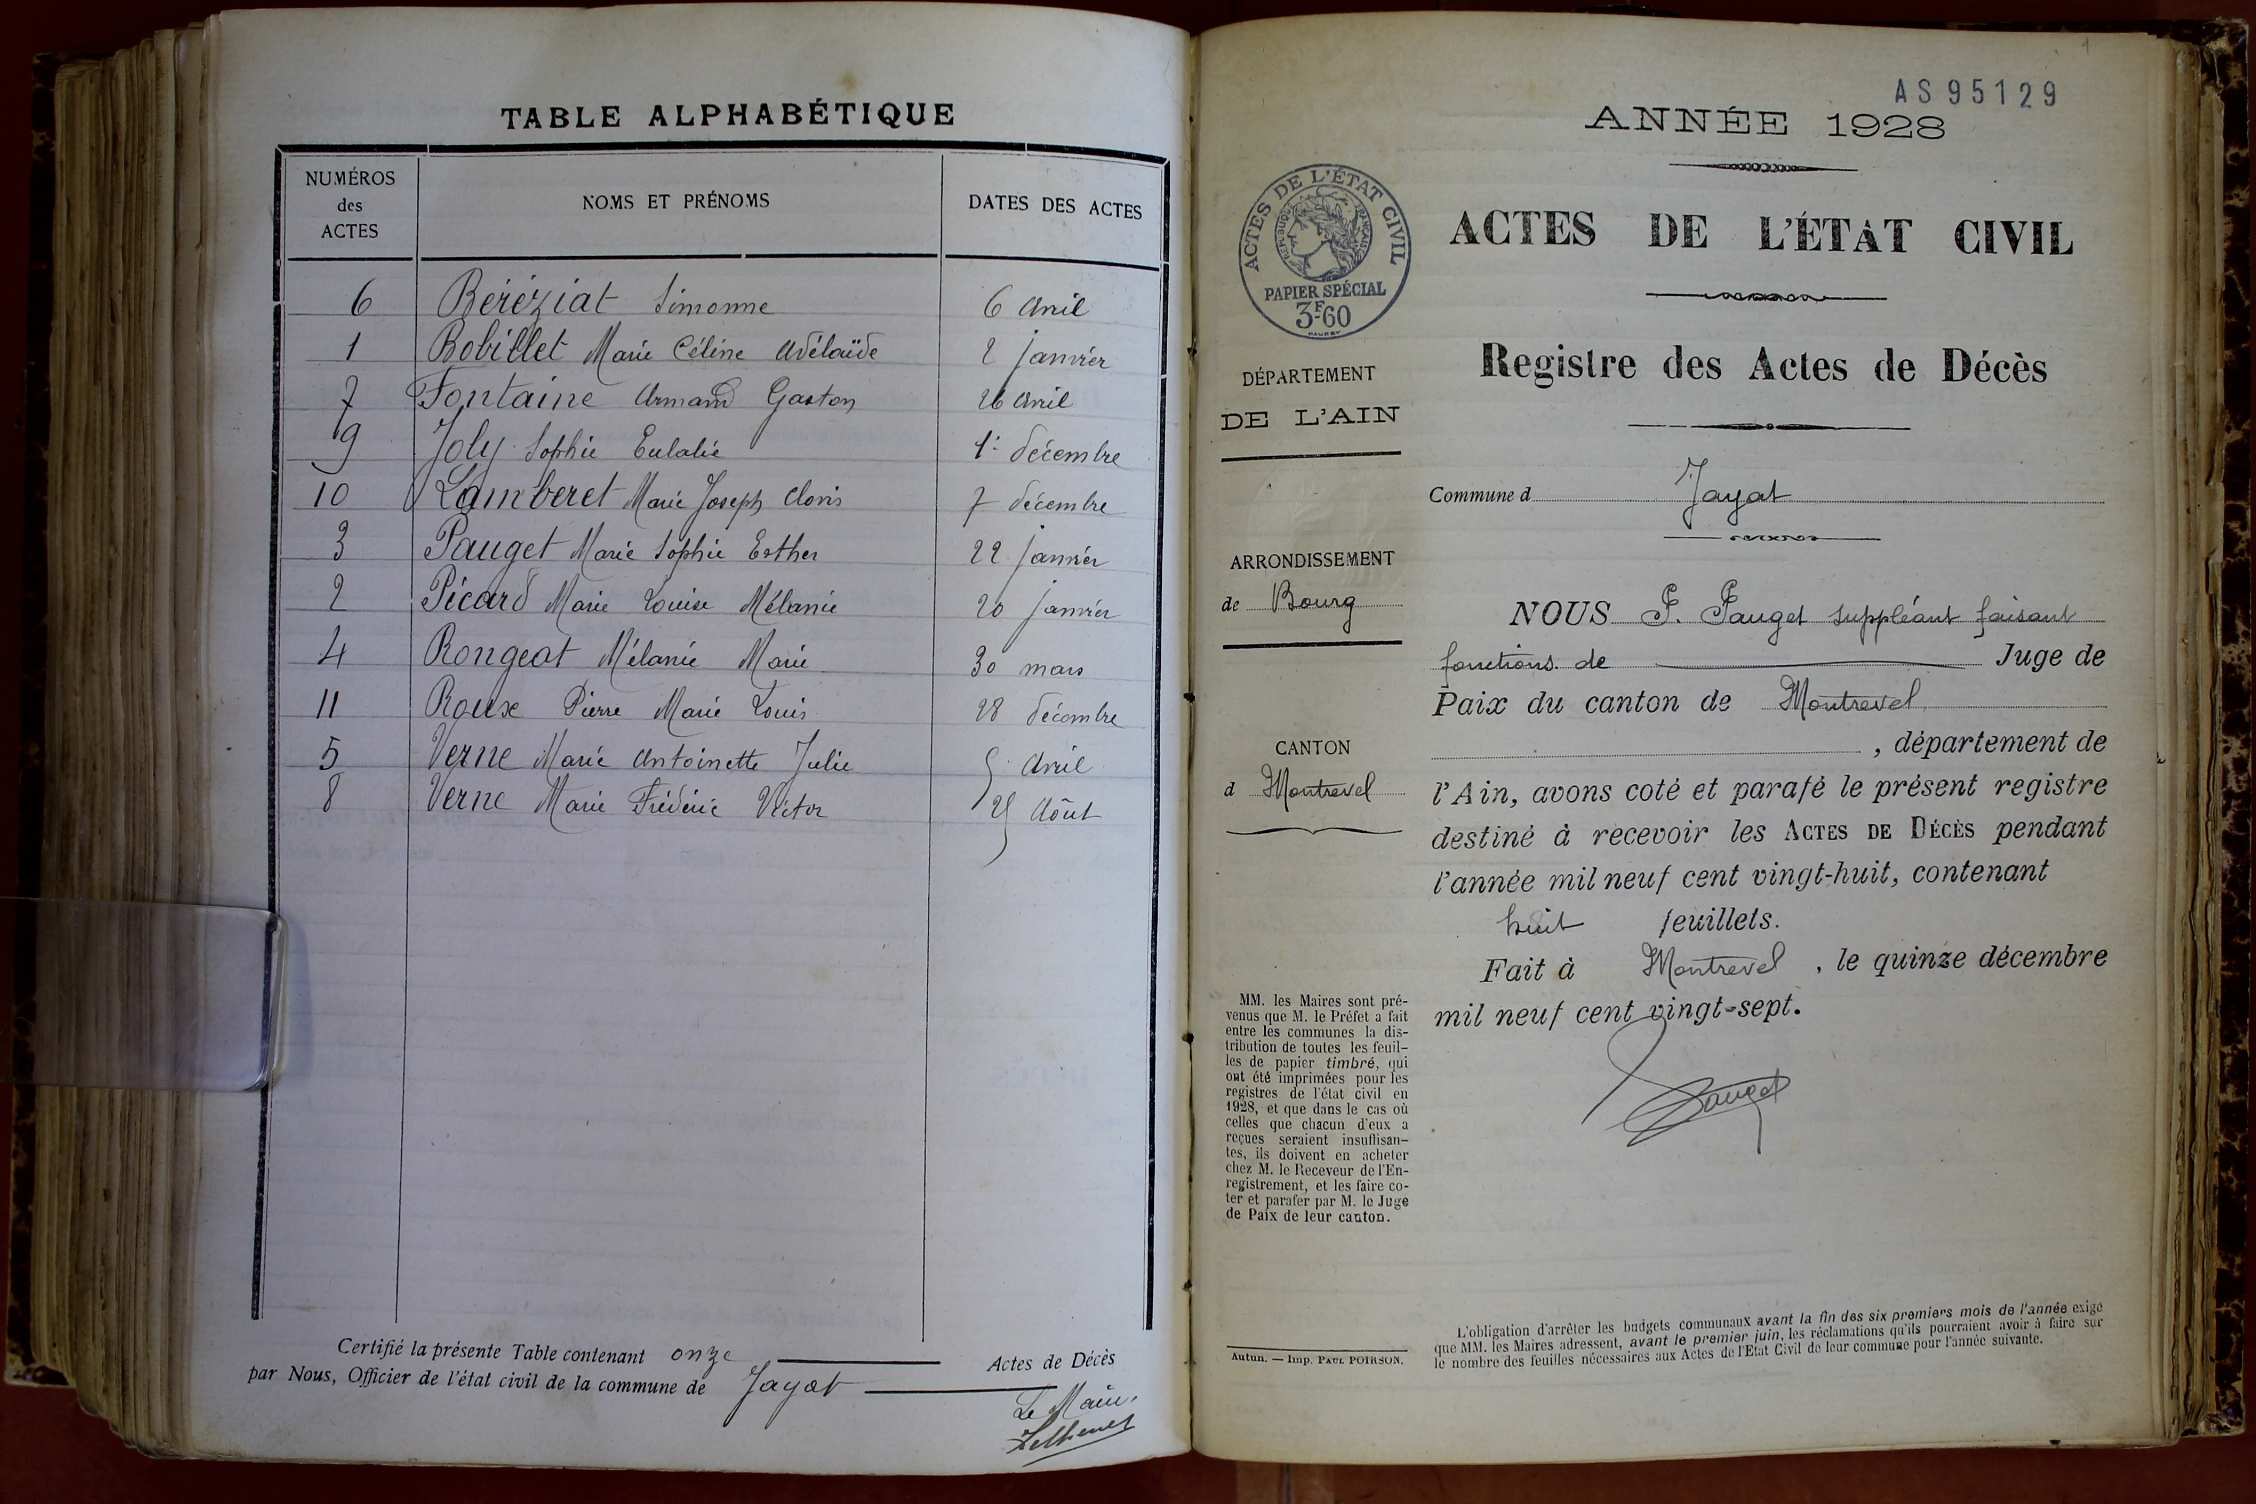 TABLE ALPHABÉTIQUE
NUMÉROS des ACTES NOMS ET PRÉNOMS DATES DES ACTES
6 Béréziat Simonne 6 Avril
1 Bobillet Marie Céline Adélaïde 2 janvier
7 Fontaine Armand Gaston 26 Avril
9 Joly Sophie Eulalie 1er décembre
10 Lamberet Marie Joseph Clovis 7 décembre
3 Pauget Marie Sophie Esther 22 janvier
2 Pécard Marie Louise Mélanie 20 janvier
4 Rongeat Mélanie Marie 30 mars
11 Roux Pierre Marie Louis 28 décembre
5 Verne Marie Antoinette Julie 5 Avril
8 Verne Marie Frédéric Victor 25 Août
Certifié la présente Table contenant onze Actes de Décès
par Nous, Officier de l'état civil de la commune de Jayat
Le Maire,
1
AS95129
ANNÉE 1928
ACTES DE L'ÉTAT CIVIL
RÉPUBLIQUE FRANÇAISE
PAPIER SPÉCIAL
3F.60
ACTES DE L'ÉTAT CIVIL
Registre des Actes de Décès
DÉPARTEMENT
DE L'AIN
Commune d Jayat
ARRONDISSEMENT
de Bourg
CANTON
d Montrevel
NOUS P. Pauget suppléant faisant
fonctions de Juge de
Paix du canton de Montrevel
, département de
l'Ain, avons coté et parafé le présent registre
destiné à recevoir les ACTES DE DÉCÈS pendant
l'année mil neuf cent vingt-huit, contenant
huit feuillets.
Fait à Montrevel, le quinze décembre
mil neuf cent vingt-sept.
Pauget
MM. les Maires sont pré-
venus que M. le Préfet a fait
entre les communes la dis-
tribution de toutes les feuil-
les de papier timbré, qui
ont été imprimées pour les
registres de l'état civil en
1928, et que dans le cas où
celles que chacun d'eux a
reçues seraient insuffisan-
tes, ils doivent en acheter
chez M. le Receveur de l'En-
registrement, et les faire co-
ter et parafer par M. le Juge
de Paix de leur canton.
Autun. — Imp. PAUL POIRSON.
L'obligation d'arrêter les budgets communaux avant la fin des six premiers mois de l'année exige
que MM. les Maires adressent, avant le premier juin, les réclamations qu'ils pourraient avoir à faire sur
le nombre des feuilles nécessaires aux Actes de l'Etat Civil de leur commune pour l'année suivante.